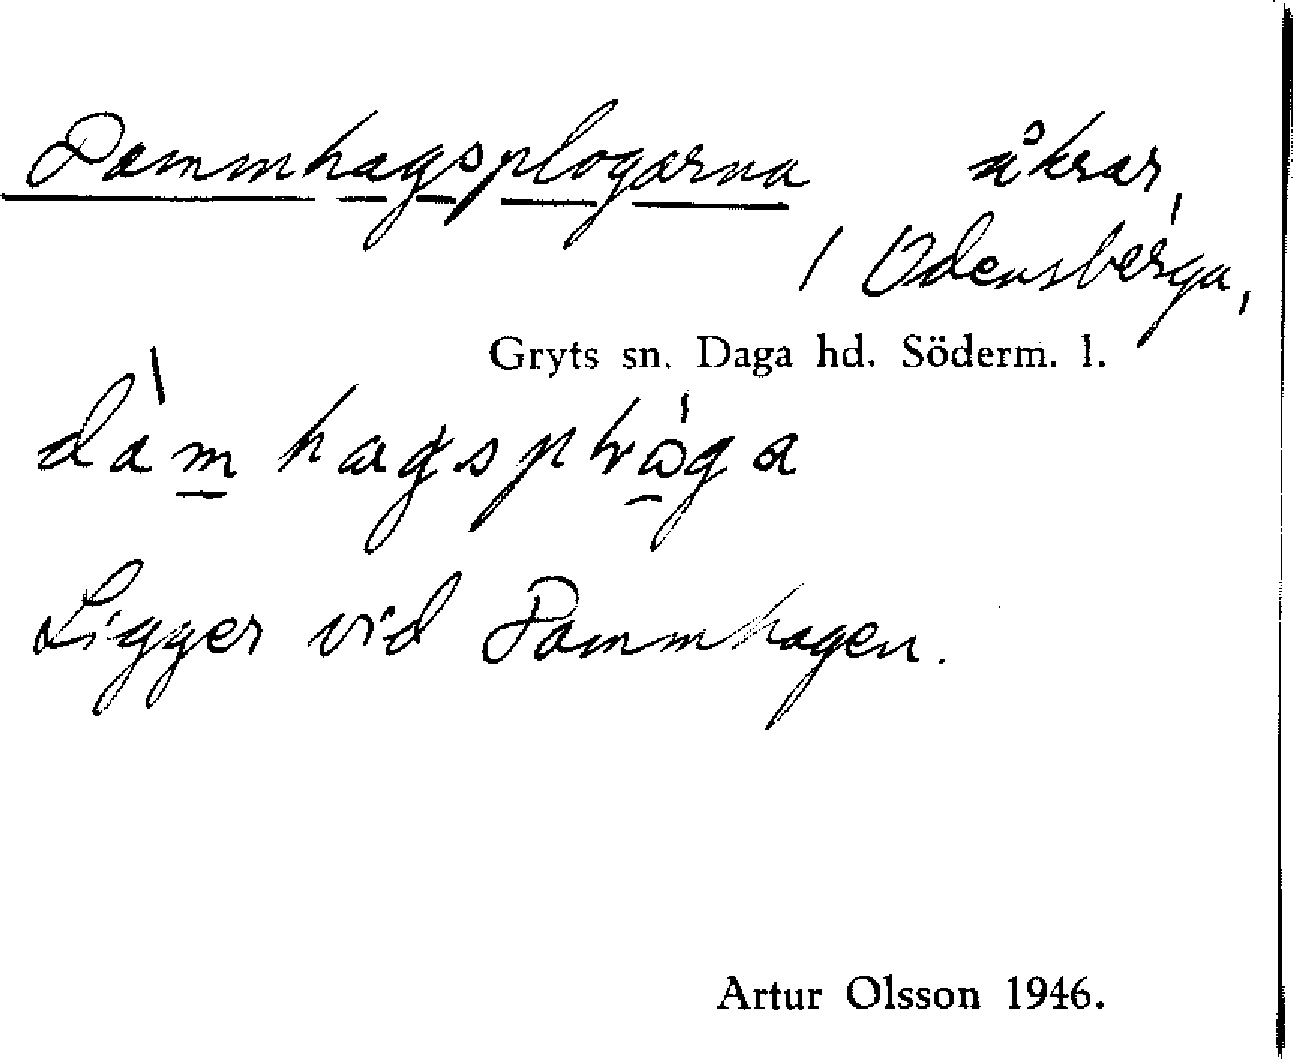 Dammhagsplogarna åkrar,
/ Odensberga,
Gryts sn. Daga hd. Söderm. l.
Ligger vid Dammhagen.
Artur Olsson 1946.